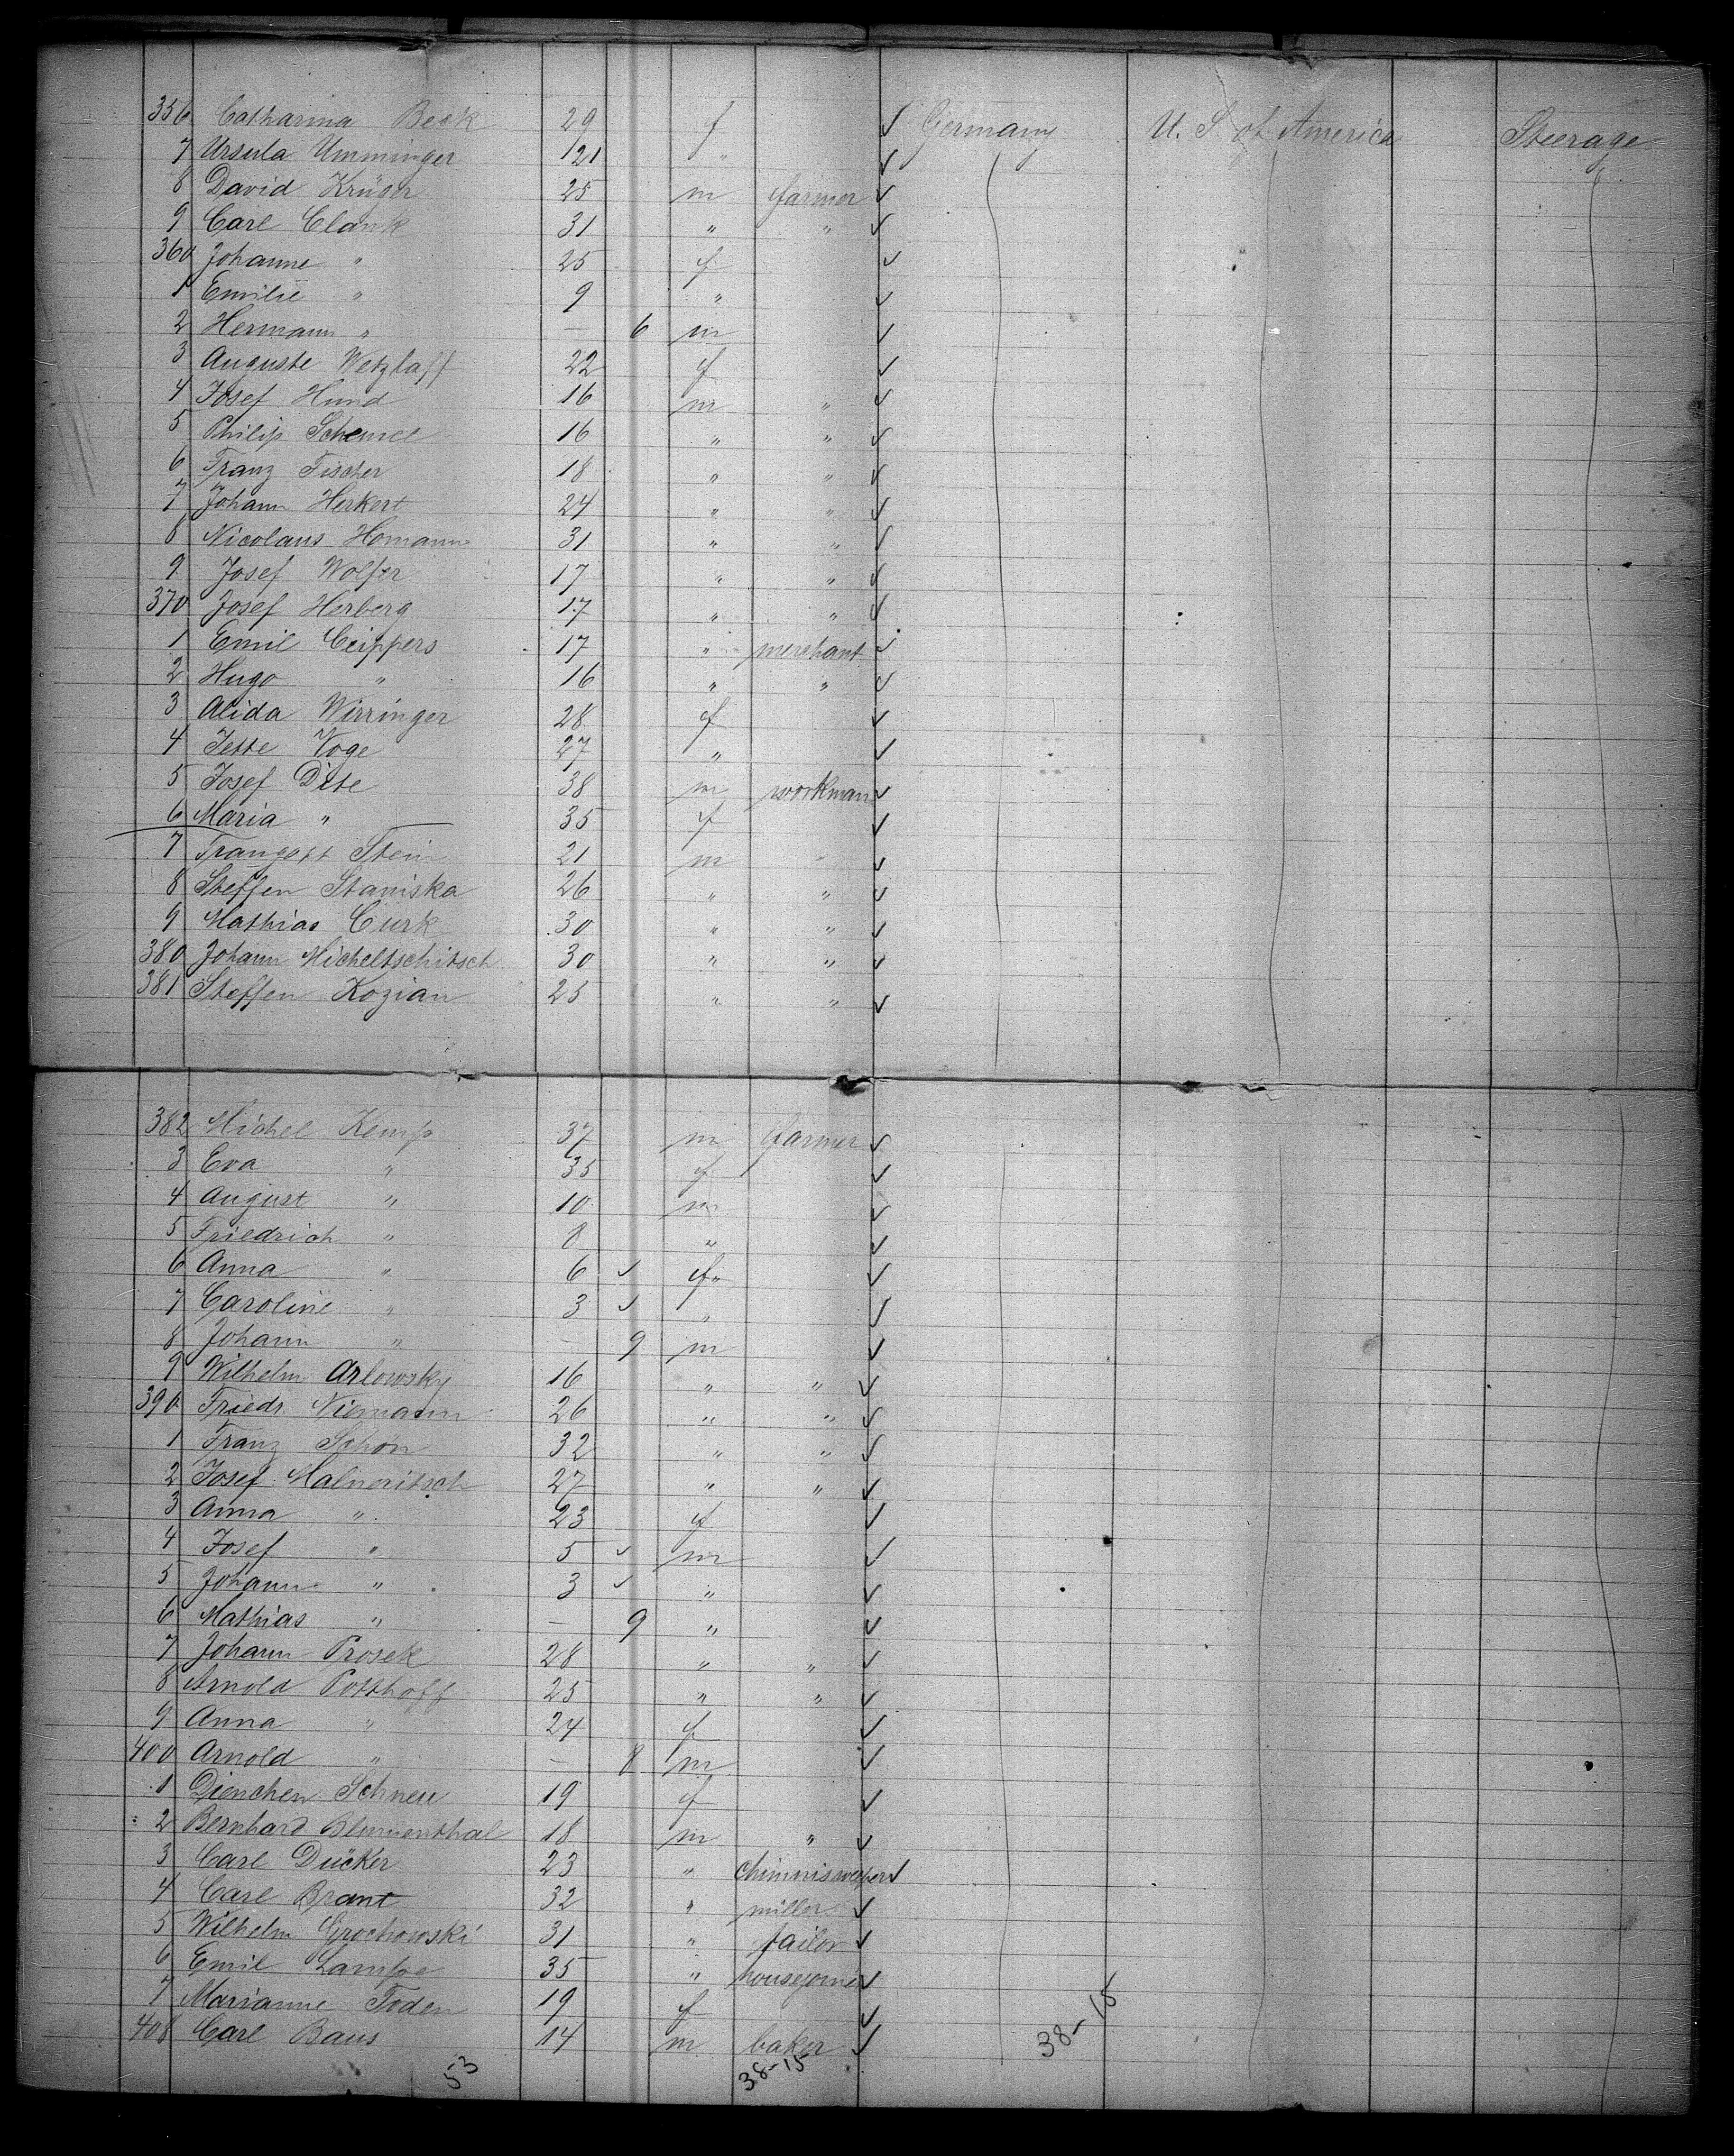 356 Catharina Beck 29 f ✓ Germany U. S. of America Steerage
7 Ursula Umminger 21 " ✓
8 David Krüger 25 m farmer ✓
9 Carl Clank 31 " " ✓
360 Johanne " 25 f ✓
1 Emilie " 9 " ✓
2 Hermann " — 6 m ✓
3 Auguste Wetzlaff 22 f ✓
4 Josef Hund 16 m " ✓
5 Philip 16 " " ✓
6 Franz Fischer 18 " " ✓
7 Johann Herkert 24 " " ✓
8 Nicolaus Homann 31 " " ✓
9 Josef Wolfer 17 " " ✓
370 Josef Herberg 17 " " ✓
1 Emil Ceippers 17 " merchant ✓
2 Hugo " 16 " " ✓
3 Alida Wirringer 28 f ✓
4 Jette Voge 27 " ✓
5 Josef Dite 38 m workman ✓
6 Maria " 35 f ✓
7 Traugott Stein 21 m " ✓
8 Steffen Staniska 26 " " ✓
9 Mathias Curk 30 " " ✓
380 Johann Micheltschitsch 30 " " ✓
381 Steffen Kozian 25 " " ✓
382 Michel Kemp 37 m farmer ✓
3 Eva " 35 f ✓
4 August " 10 m ✓
5 Friedrich " 8 " ✓
6 Anna " 6 ✓ f ✓
7 Caroline " 3 ✓ " ✓
8 Johann " — 9 m ✓
9 Wilhelm Arlowsky 16 " " ✓
390 Friedr. Niemann 26 " " ✓
1 Franz Schön 32 " " ✓
2 Josef Malneritsch 27 " " ✓
3 Anna " 23 f ✓
4 Josef " 5 ✓ m ✓
5 Johann " 3 ✓ " ✓
6 Mathias " — 9 " ✓
7 Johann Prosek 28 " " ✓
8 Arnold Potthoff 25 " " ✓
9 Anna " 24 f ✓
400 Arnold " — 8 m ✓
1 Dienchen 19 f ✓
2 Bernhard Blumenthal 18 m " ✓
3 Carl Dücker 23 " ✓
4 Carl Brant 32 " miller ✓
5 Wilhelm Grochowski 31 " tailor ✓
6 Emil Lampe 35 " ✓
7 Marianne Toden 19 f ✓
408 Carl Baus 14 m baker ✓
38-15
53 38-15